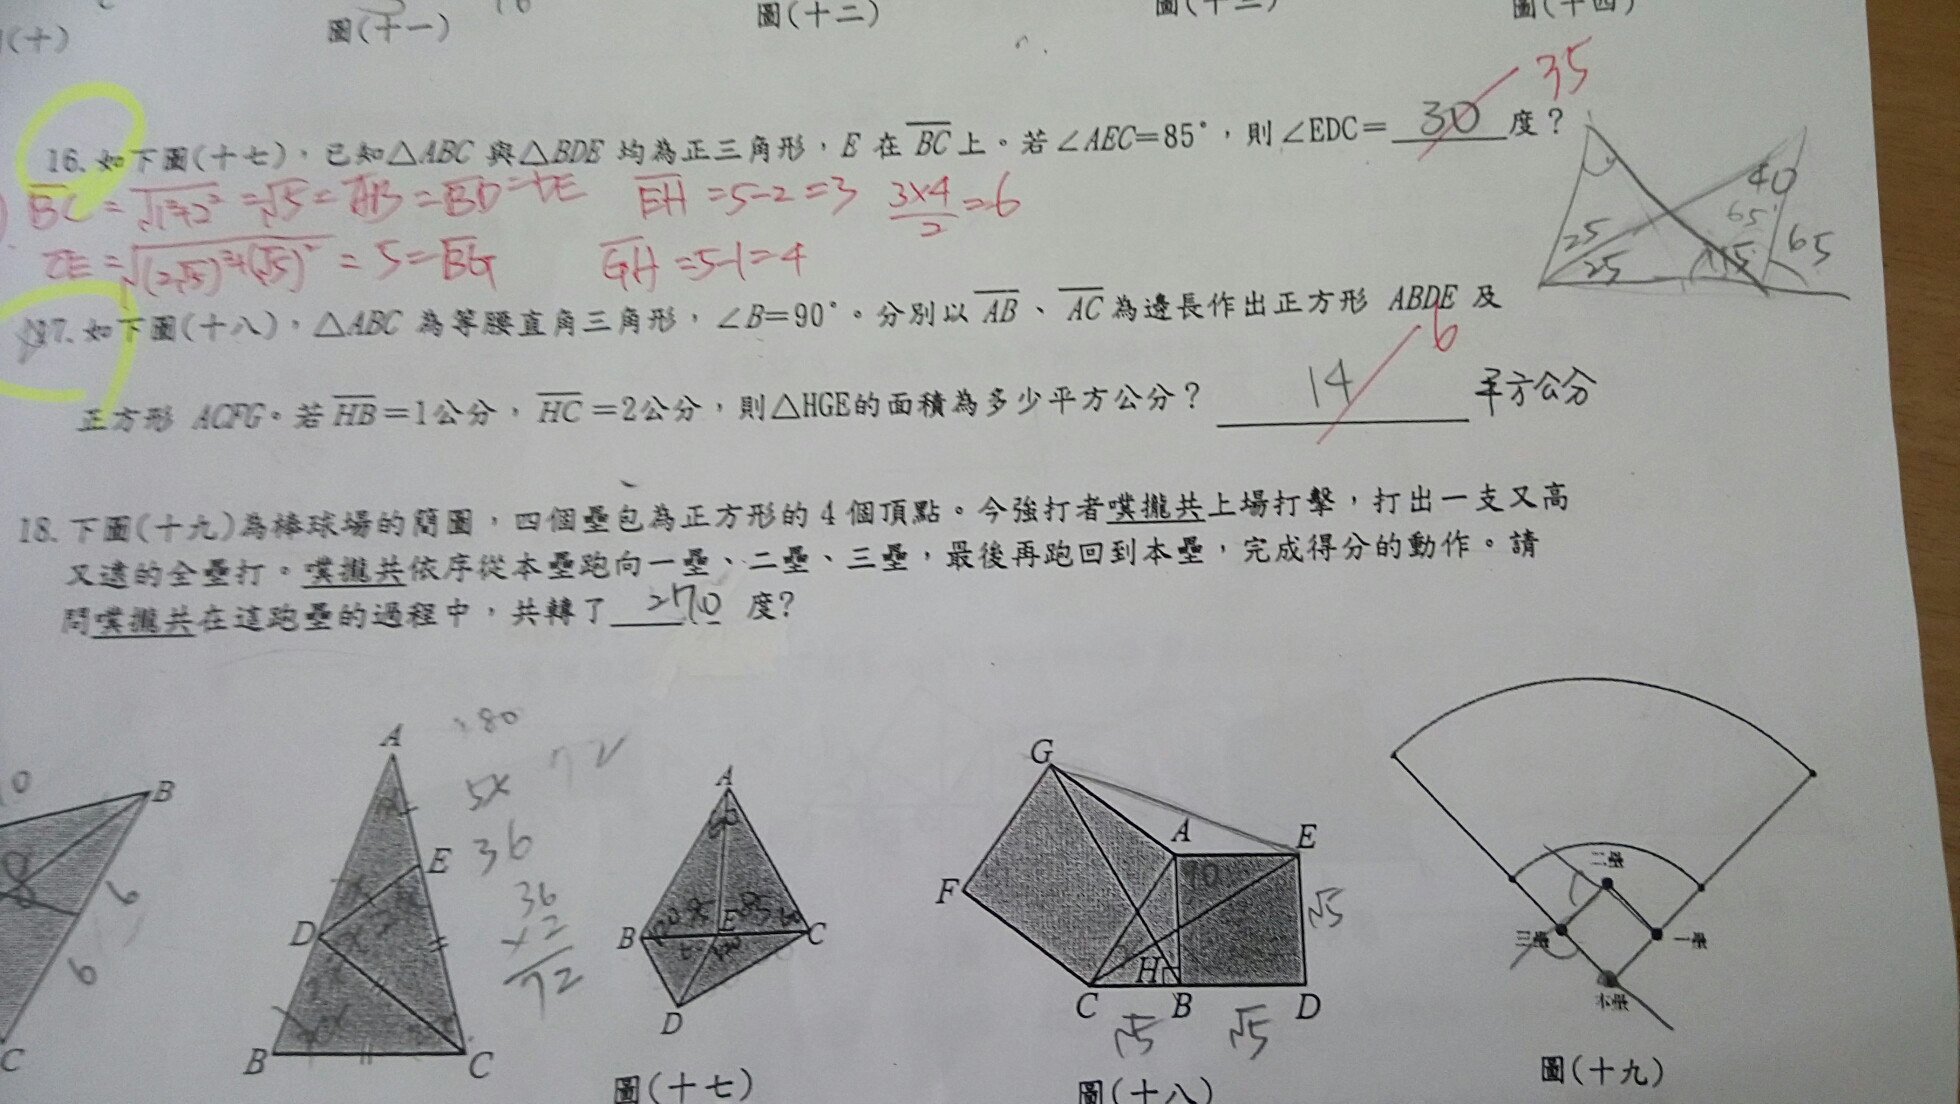 (十)
圖(十一)
圖(十二)
圖(十三)
圖(十四)
16. 如下圖(十七)，已知△ABC 與△BDE 均為正三角形，E 在 BC 上。若∠AEC=85°，則∠EDC= 30 度？
35
BC = √1²+2² = √5 = AB = BD = DE EH = 5-2 = 3 3×4/2 = 6
CE = √(2√5)²+(√5)² = 5 = BG GH = 5-1 = 4
25
25
40
65
15
65
17. 如下圖(十八)，△ABC 為等腰直角三角形，∠B=90°。分別以 AB、AC 為邊長作出正方形 ABDE 及
正方形 ACFG。若 HB=1公分，HC=2公分，則△HGE的面積為多少平方公分？ 14 平方公分
6
18. 下圖(十九)為棒球場的簡圖，四個壘包為正方形的 4 個頂點。今強打者噗攏共上場打擊，打出一支又高
又遠的全壘打。噗攏共依序從本壘跑向一壘、二壘、三壘，最後再跑回到本壘，完成得分的動作。請
問噗攏共在這跑壘的過程中，共轉了 270 度？
0
B
8
6
6
C
A
E
D
B
C
180
5x
72
36
36
×2
72
A
60
B
60
95
E
85
60
C
D
圖(十七)
G
A
E
90
F
√5
H
C
B
D
√5
√5
圖(十八)
二壘
三壘
一壘
本壘
圖(十九)